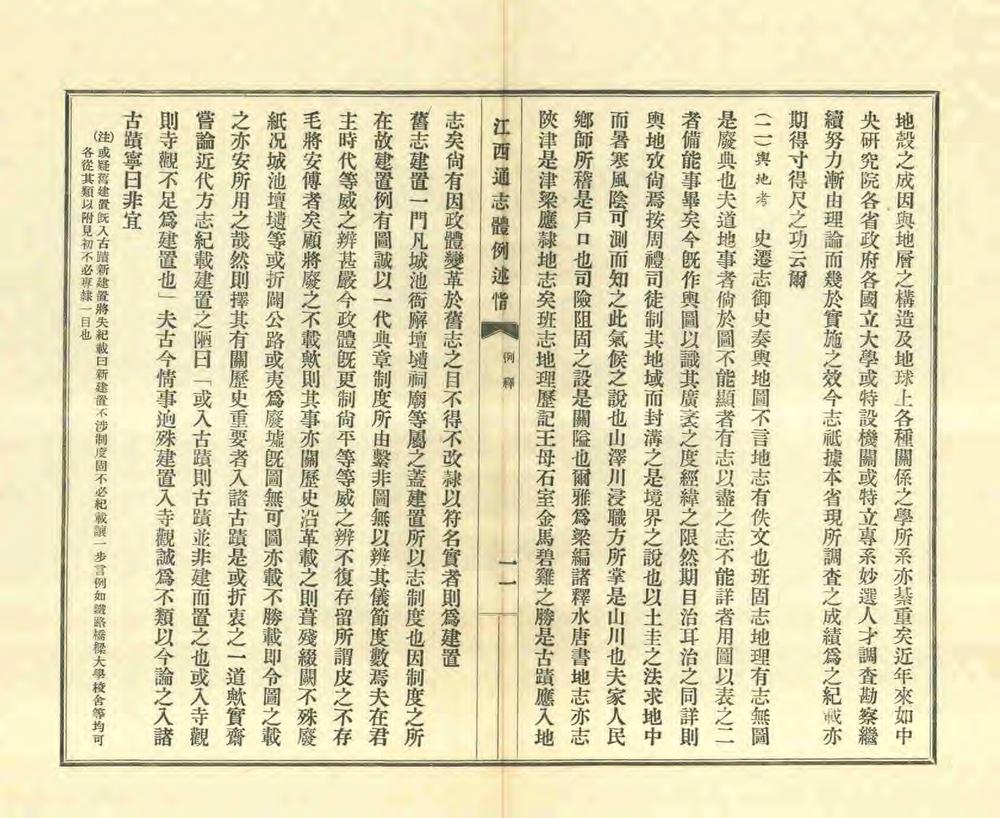 地殼之成因與地層之構造及地球上各種關係之學所系亦綦重矣近年來如中
央研究院各省政府各國立大學或特設機關或特立專系妙選人才調查勘察繼
續努力漸由理論而幾於實施之效今志祗據本省現所調查之成績為之紀載亦
期得寸得尺之功云爾
(二)輿地考　史遷志御史奏輿地圖不言地志有佚文也班固志地理有志無圖
是廢典也夫道地事者倘於圖不能顯者有志以盡之志不能詳者用圖以表之二
者備能事畢矣今既作輿圖以識其廣袤之度經緯之限然期目治耳治之同詳則
輿地攷尙焉按周禮司徒制其地域而封溝之是境界之說也以土圭之法求地中
而暑寒風陰可測而知之此氣候之說也山澤川浸職方所掌是山川也夫家人民
鄉師所稽是戶口也司險阻固之設是關隘也爾雅為梁編諸釋水唐書地志亦志
陝津是津梁應隸地志矣班志地理歷記王母石室金馬碧雞之勝是古蹟應入地
江西通志體例述恉
例釋
一一
志矣尙有因政體變革於舊志之目不得不改隸以符名實者則為建置
舊志建置一門凡城池衙廨壇壝祠廟等屬之蓋建置所以志制度也因制度之所
在故建置例有圖誠以一代典章制度所由繫非圖無以辨其儀節度數焉夫在君
主時代等威之辨甚嚴今政體既更制尙平等等威之辨不復存留所謂皮之不存
毛將安傅者矣顧將廢之不載歟則其事亦關歷史沿革載之則葺殘綴闕不殊廢
紙况城池壇壝等或折闢公路或夷為廢墟既圖無可圖亦載不勝載即令圖之載
之亦安所用之哉然則擇其有關歷史重要者入諸古蹟是或折衷之一道歟實齋
嘗論近代方志紀載建置之陋曰「或入古蹟則古蹟並非建而置之也或入寺觀
則寺觀不足為建置也」夫古今情事逈殊建置入寺觀誠為不類以今論之入諸
古蹟寧曰非宜
(注)或疑舊建置既入古蹟新建置將失紀載曰新建置不涉制度固不必紀載讓一步言例如鐵路橋樑大學校舍等均可
各從其類以附見初不必專隸一目也